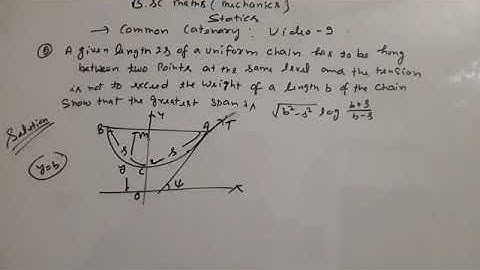 B.SC maths (mechanics)
Statics
→ Common Catenary: Video-9
A given length 2s of a uniform chain has to be hung
between two Points at the same level and the tension
is not to exceed the weight of a length b of the chain
Show that the greatest span is √b²-s² log b+s/b-s
Solution
Y
B M A T
s s
y=b y C
ψ
O X